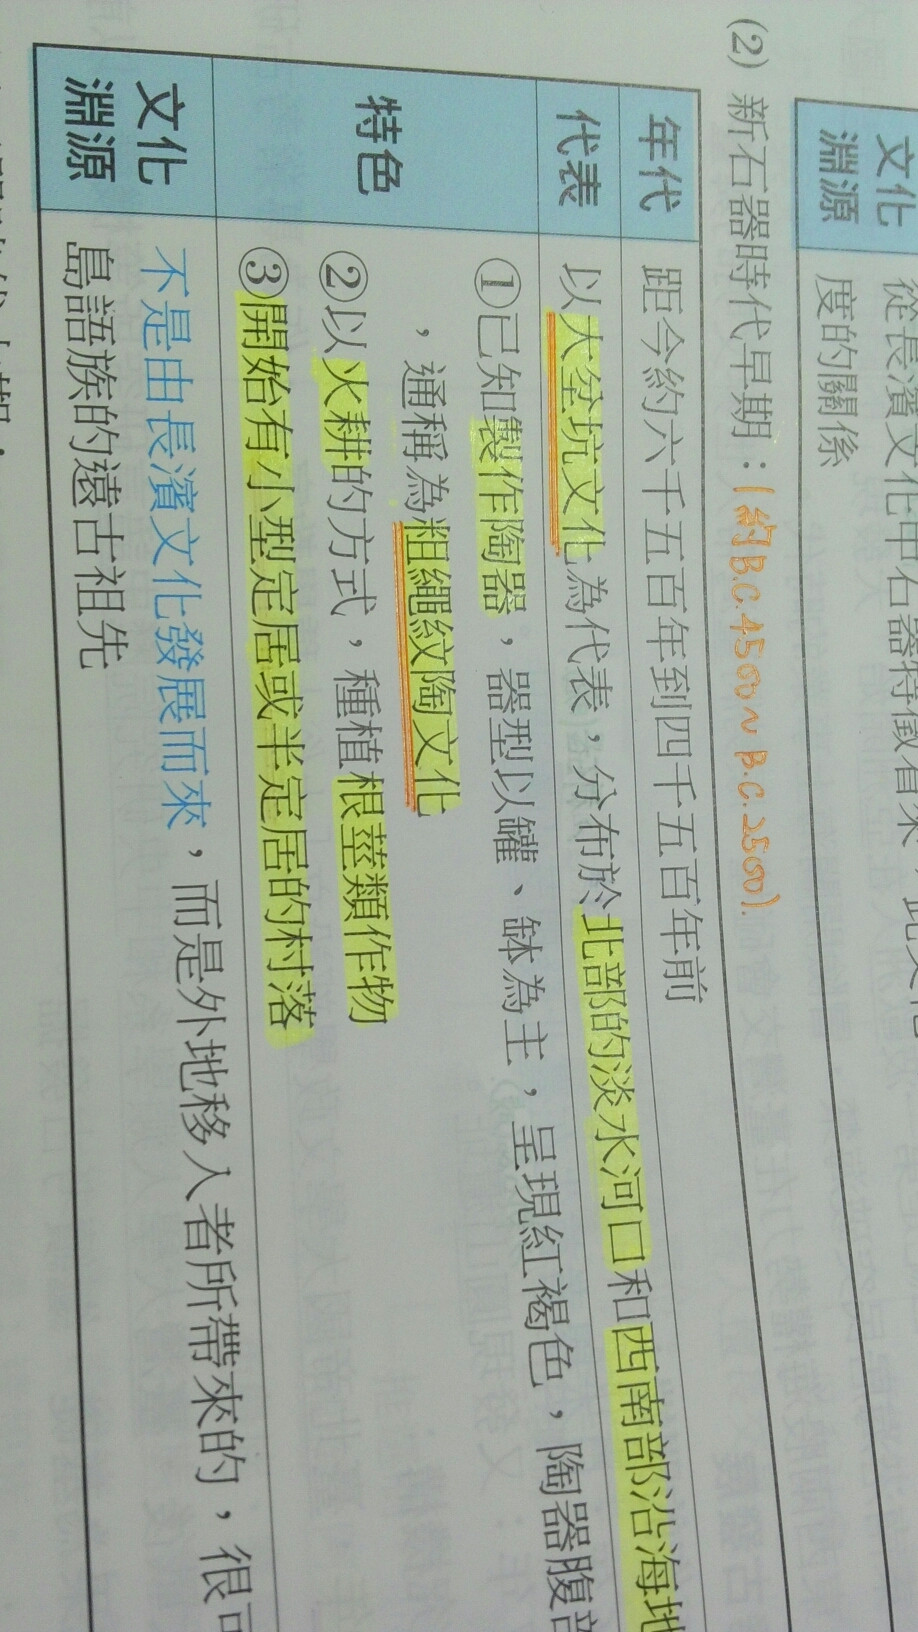 文化
淵源
從長濱文化中石器特徵看來，此文化
度的關係
(2) 新石器時代早期：(約B.C.4500~B.C.2500).
年代
距今約六千五百年到四千五百年前
代表
以大坌坑文化為代表，分布於北部的淡水河口和西南部沿海地
特色
①已知製作陶器，器型以罐、缽為主，呈現紅褐色，陶器腹部
，通稱為粗繩紋陶文化
②以火耕的方式，種植根莖類作物
③開始有小型定居或半定居的村落
文化
淵源
不是由長濱文化發展而來，而是外地移入者所帶來的，很可
島語族的遠古祖先